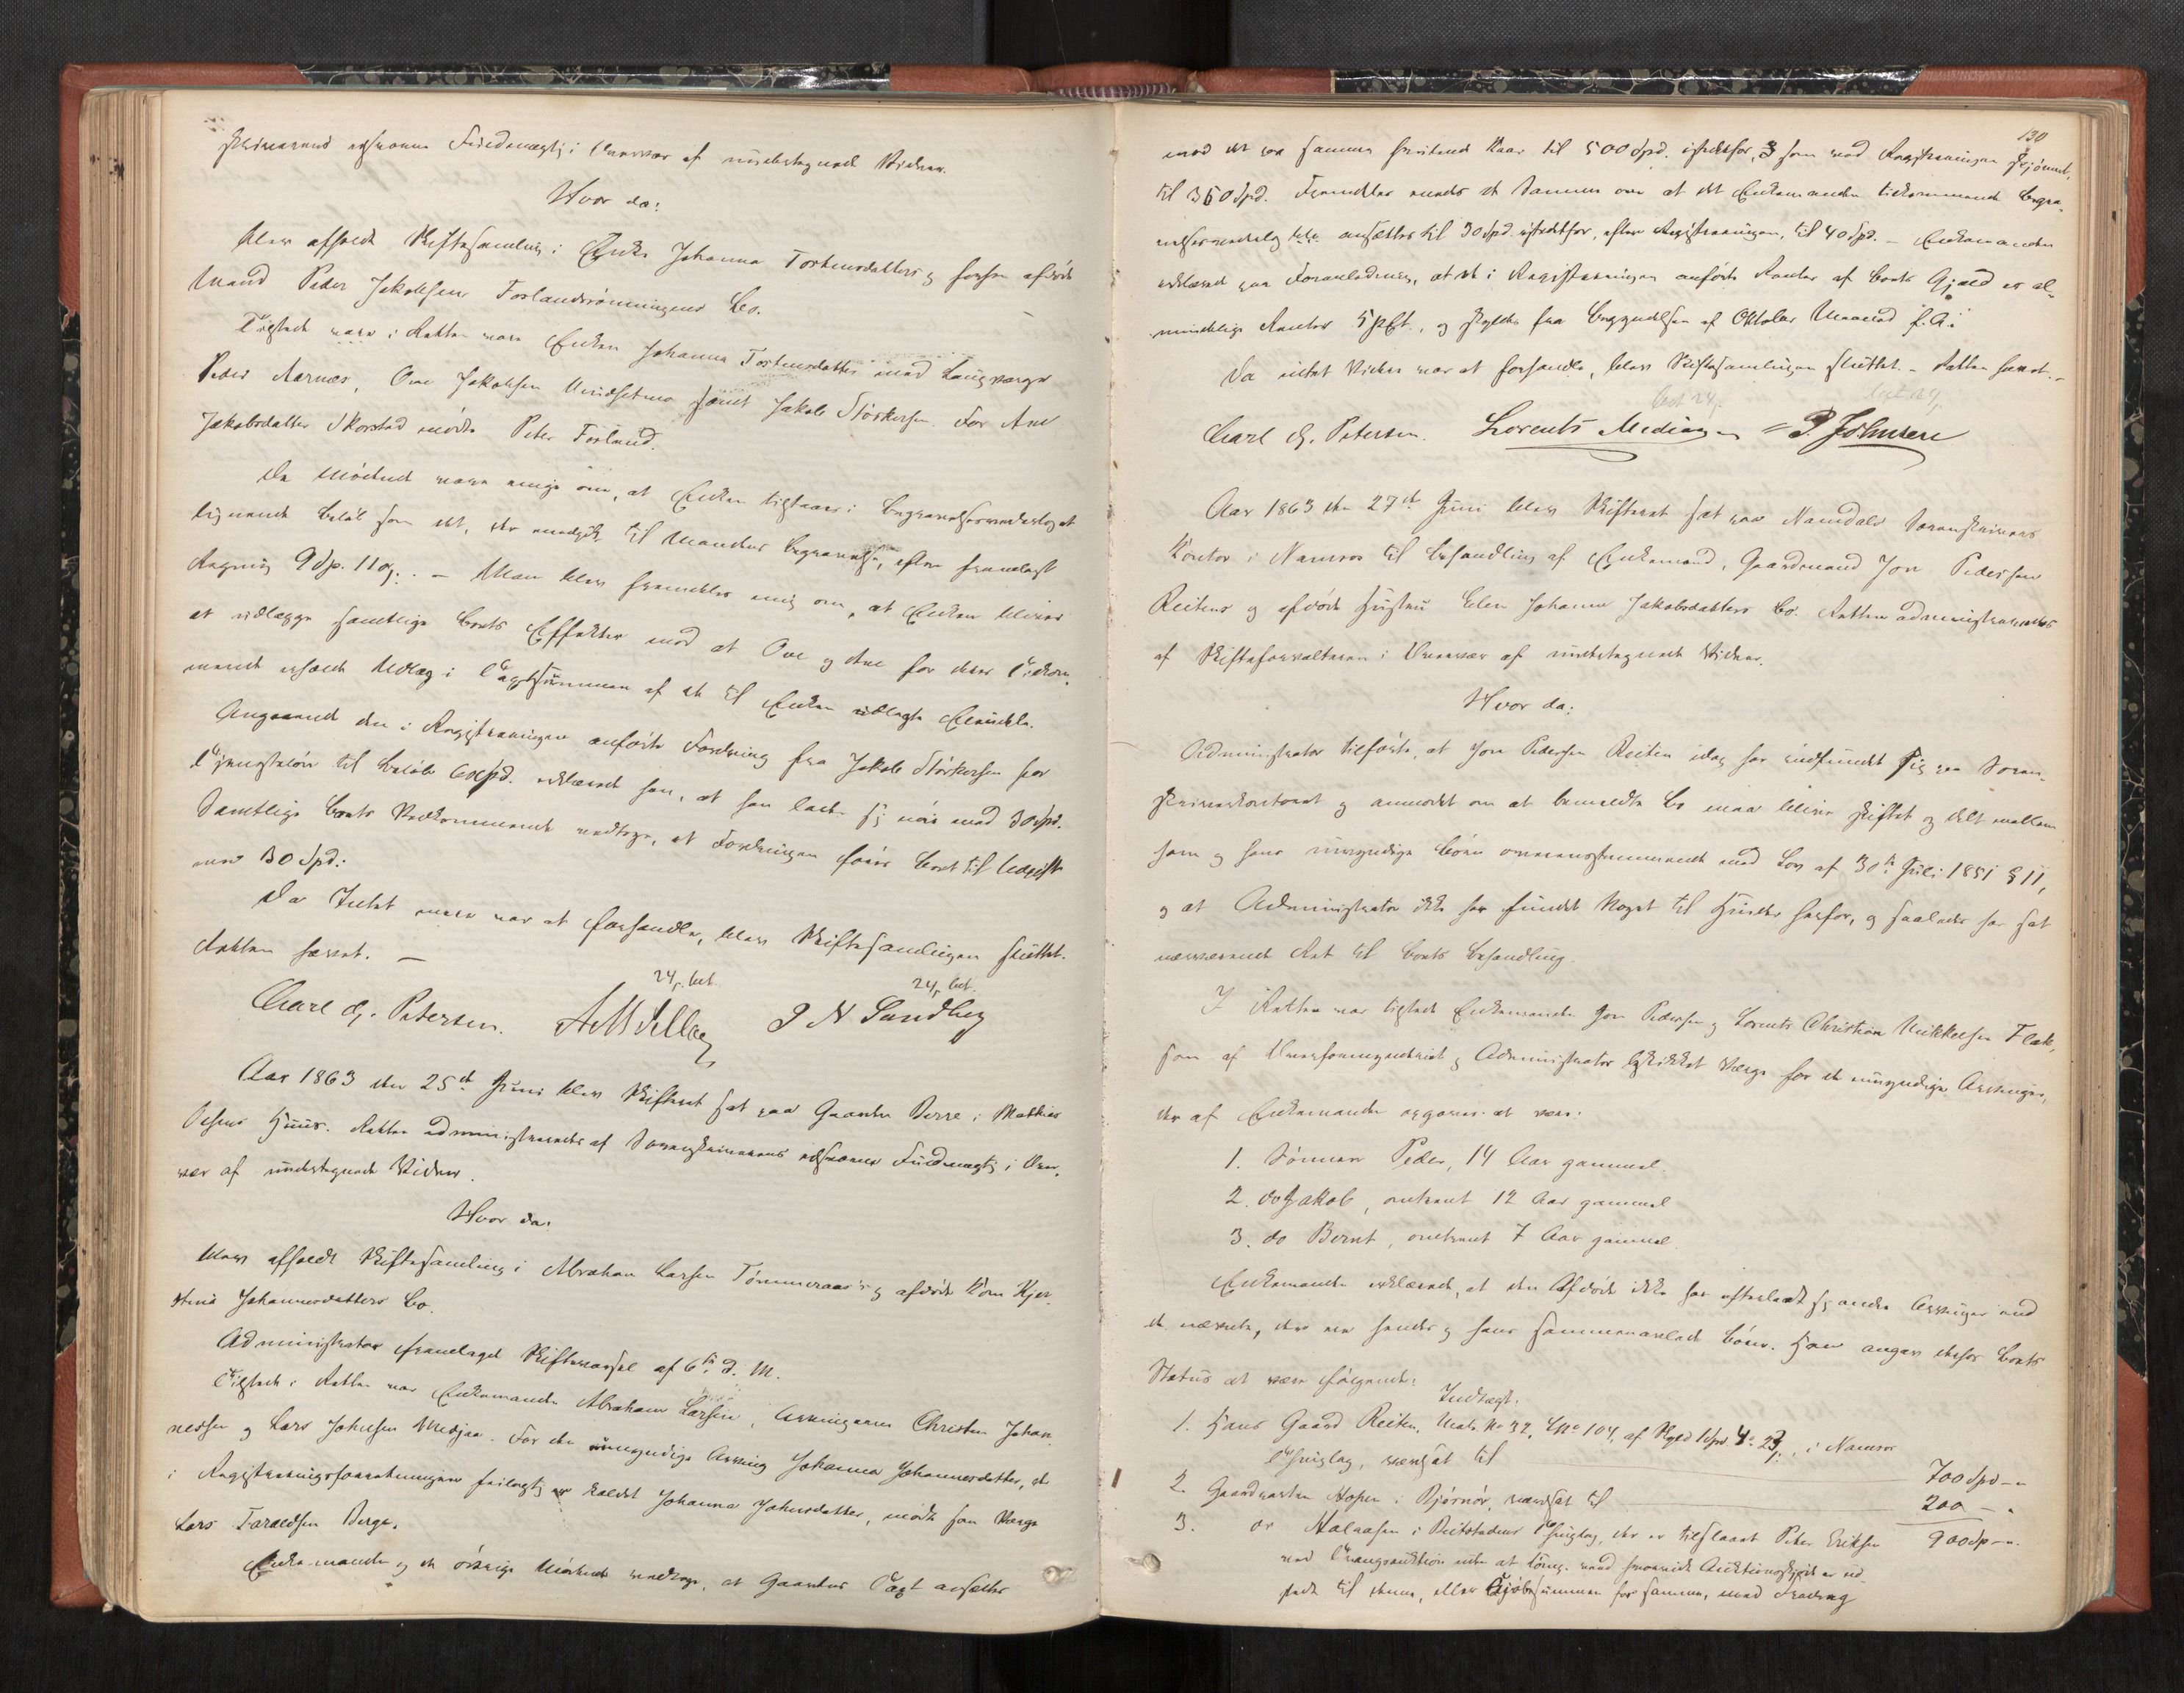 skriverens edsvorne Fuldmægtig i Overvær af undertegnede Vidner.
Hvor da:
blev afholdt Skiftesamling i Enke Johanna Torstensdatters og hendes afdøde
Mand Peder Jakobsens Forlandsrønningens Bo.
Tilstede vare i Retten vare Enken Johanna Torstensdatter med Laugværge
Peder Aarnes, Ove Jakobsen samt Jakob Størkersen. For Ane
Jakobsdatter Skorstad mødte Peter Forland.
De Mødende vare enige om, at Enken tilstaaes i Begravelsesvederlag et
lignende Beløb som det, der medgik til Mandens Begravelse, efter fremlagt
Regning 9 Sp. 110 s. – Man blev fremdeles enig om, at Enken bliver
at udlægge samtlige Boets Effekter mod at Ove og Ane for deres Tilkom-
mende erholde Udlæg i Taxtsummen af de til Enken udlagte Eiendele.
Angaaende den i Registreringen anførte Fordring fra Jakob Størkersen for
Tjenesteløn til Beløb 60 Spd. erklærede han, at han lader sig nøie med 30 Spd.
Samtlige Boets Vedkommende vedtoge, at Fordringen føres Boet til Udgift
med 30 Spd:
Da Intet mere var at forhandle, blev Skiftesamlingen sluttet.
Retten hævet. —
24 s. bet. 24 s. bet.
Carl G. Petersen. P N Sandberg
Aar 1863 den 25de Juni blev Skifteret sat paa Gaarden Berre i Mathias
Olsens Huus. Retten administreredes af Sorenskriverens edsvorne Fuldmægtig i Over-
vær af undertegnede Vidner.
Hvor da:
blev afholdt Skiftesamling i Abraham Larsen Tømmeraas's og afdøde Kone Kjer-
stina Johannesdatters Bo.
Administrator fremlagde Skiftevarsel af 6te d. M.
Tilstede i Retten var Enkemanden Abraham Larsen, Arvingerne Christen Johan-
nessen og Lars Johnsen Medjaa. For den umyndige Arving Johanna Johannesdatter, der
i Registreringsforretningen feilagtig er kaldet Johanna Johnsdatter, mødte som Værge
Lars Taraldsen Berge.
Enkemanden og de øvrige Mødende vedtoge, at Gaardens Taxt ansættes
130
med det paa samme heftende Kaar til 500 Spd. istedetfor, som ved Registreringen skjønnet,
til 360 Spd. Fremdeles enedes de Samme om at det Enkemanden tilkommende Begra-
velsesvederlag ansættes til 30 Spd. istedetfor, efter Registreringen, til 40 Spd. – Enkemanden
erklærede paa Foranledning, at de i Registreringen anførte Renter af Boets Gjæld er al-
mindelige Renter 5 pCt., og skyldes fra Begyndelsen af Oktober Maaned f. A.
Da intet Videre var at forhandle, blev Skiftesamlingen sluttet. – Retten hævet. –
bet 24 s. bet 24 s.
Carl G. Petersen. Lorents Mediaas P. Johnsen
Aar 1863 den 27de Juni blev Skifteret sat paa Namdals Sorenskriveres
Kontor i Namsos til Behandling af Enkemand, Gaardmand Jon Pedersen
Reitens og afdøde Hustru Elen Johanna Jakobsdatters Bo. Retten administreredes
af Skifteforvalteren i Overvær af undertegnede Vidner.
Hvor da:
Administrator tilførte, at Jon Pedersen Reiten idag har indfundet sig paa Soren-
skriverkontoret og anmodet om at bemeldte Bo maa blive skiftet og delt mellem
ham og hans umyndige Børn overensstemmende med Lov af 30te Juli 1851 § 11,
og at Administrator ikke har fundet Noget til Hinder herfor, og saaledes har sat
nærværende Ret til Boets Behandling.
I Retten var tilstede Enkemanden Jon Pedersen og Lorents Christian Mikkelsen Flak,
som af Overformynderiet og Administrator beskikket Værge for de umyndige Arvinger,
der af Enkemanden opgaves at være:
1. Sønnen Peder, 14 Aar gammel.
2. do Jakob, omtrent 12 Aar gammel
3. do Bernt, omtrent 7 Aar gammel.
Enkemanden erklærede, at den Afdøde ikke har efterladt sig andre Arvinger end
de nævnte, der ere hendes og hans sammenavlede Børn. Han angav derfor Boets
Status at være følgende:
Indtægt.
1. Hans Gaard Reiten, Matr. No 32, L No 104, af Skyld 1 Spd 4 - 23 s., i Namsos
Thinglag, værdsat til 700 Spd – "
2. Gaardparten Hopen i Bjørnør, værdsat til 200 – "
900 Sp – ".
3. do Halaasen i Beitstadens Thinglag, der er tilslaaet Peter Eriksen
ved Tvangsauktion uden at ved hvorvidt Auktionsskjøde er ud-
stedt til denne, eller Kjøbesummen for samme, med Fradrag